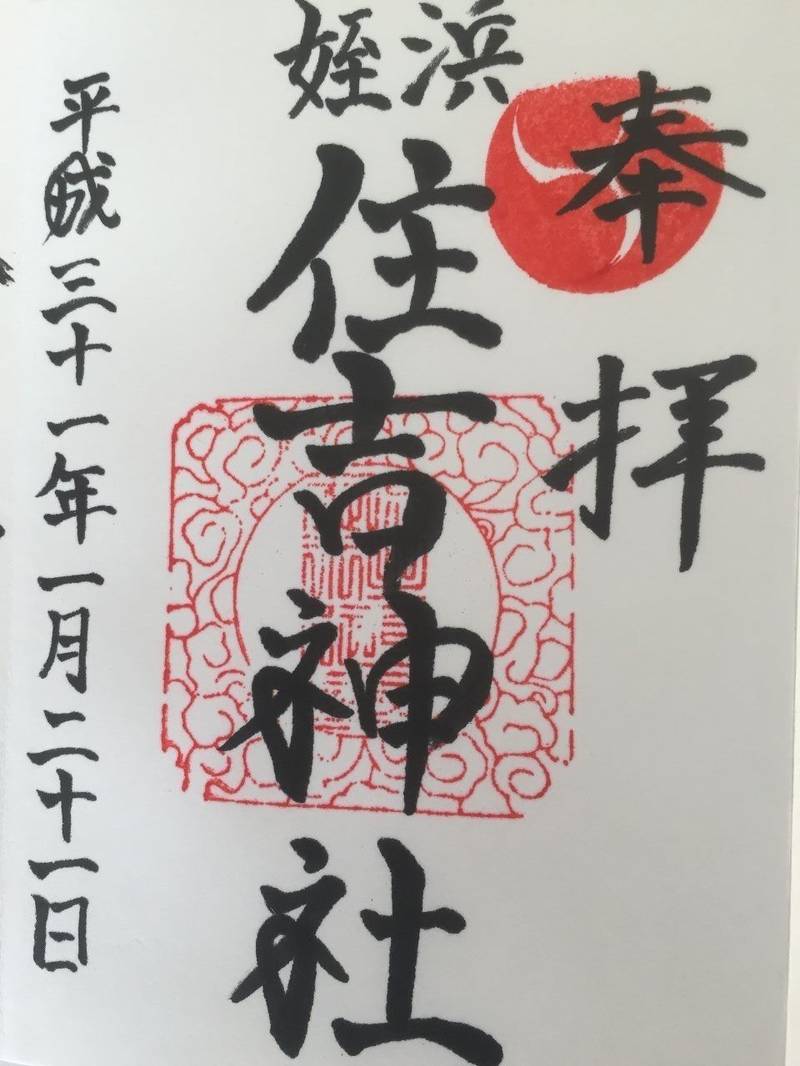 奉拝
姪浜
住吉神社
平成三十一年一月二十一日